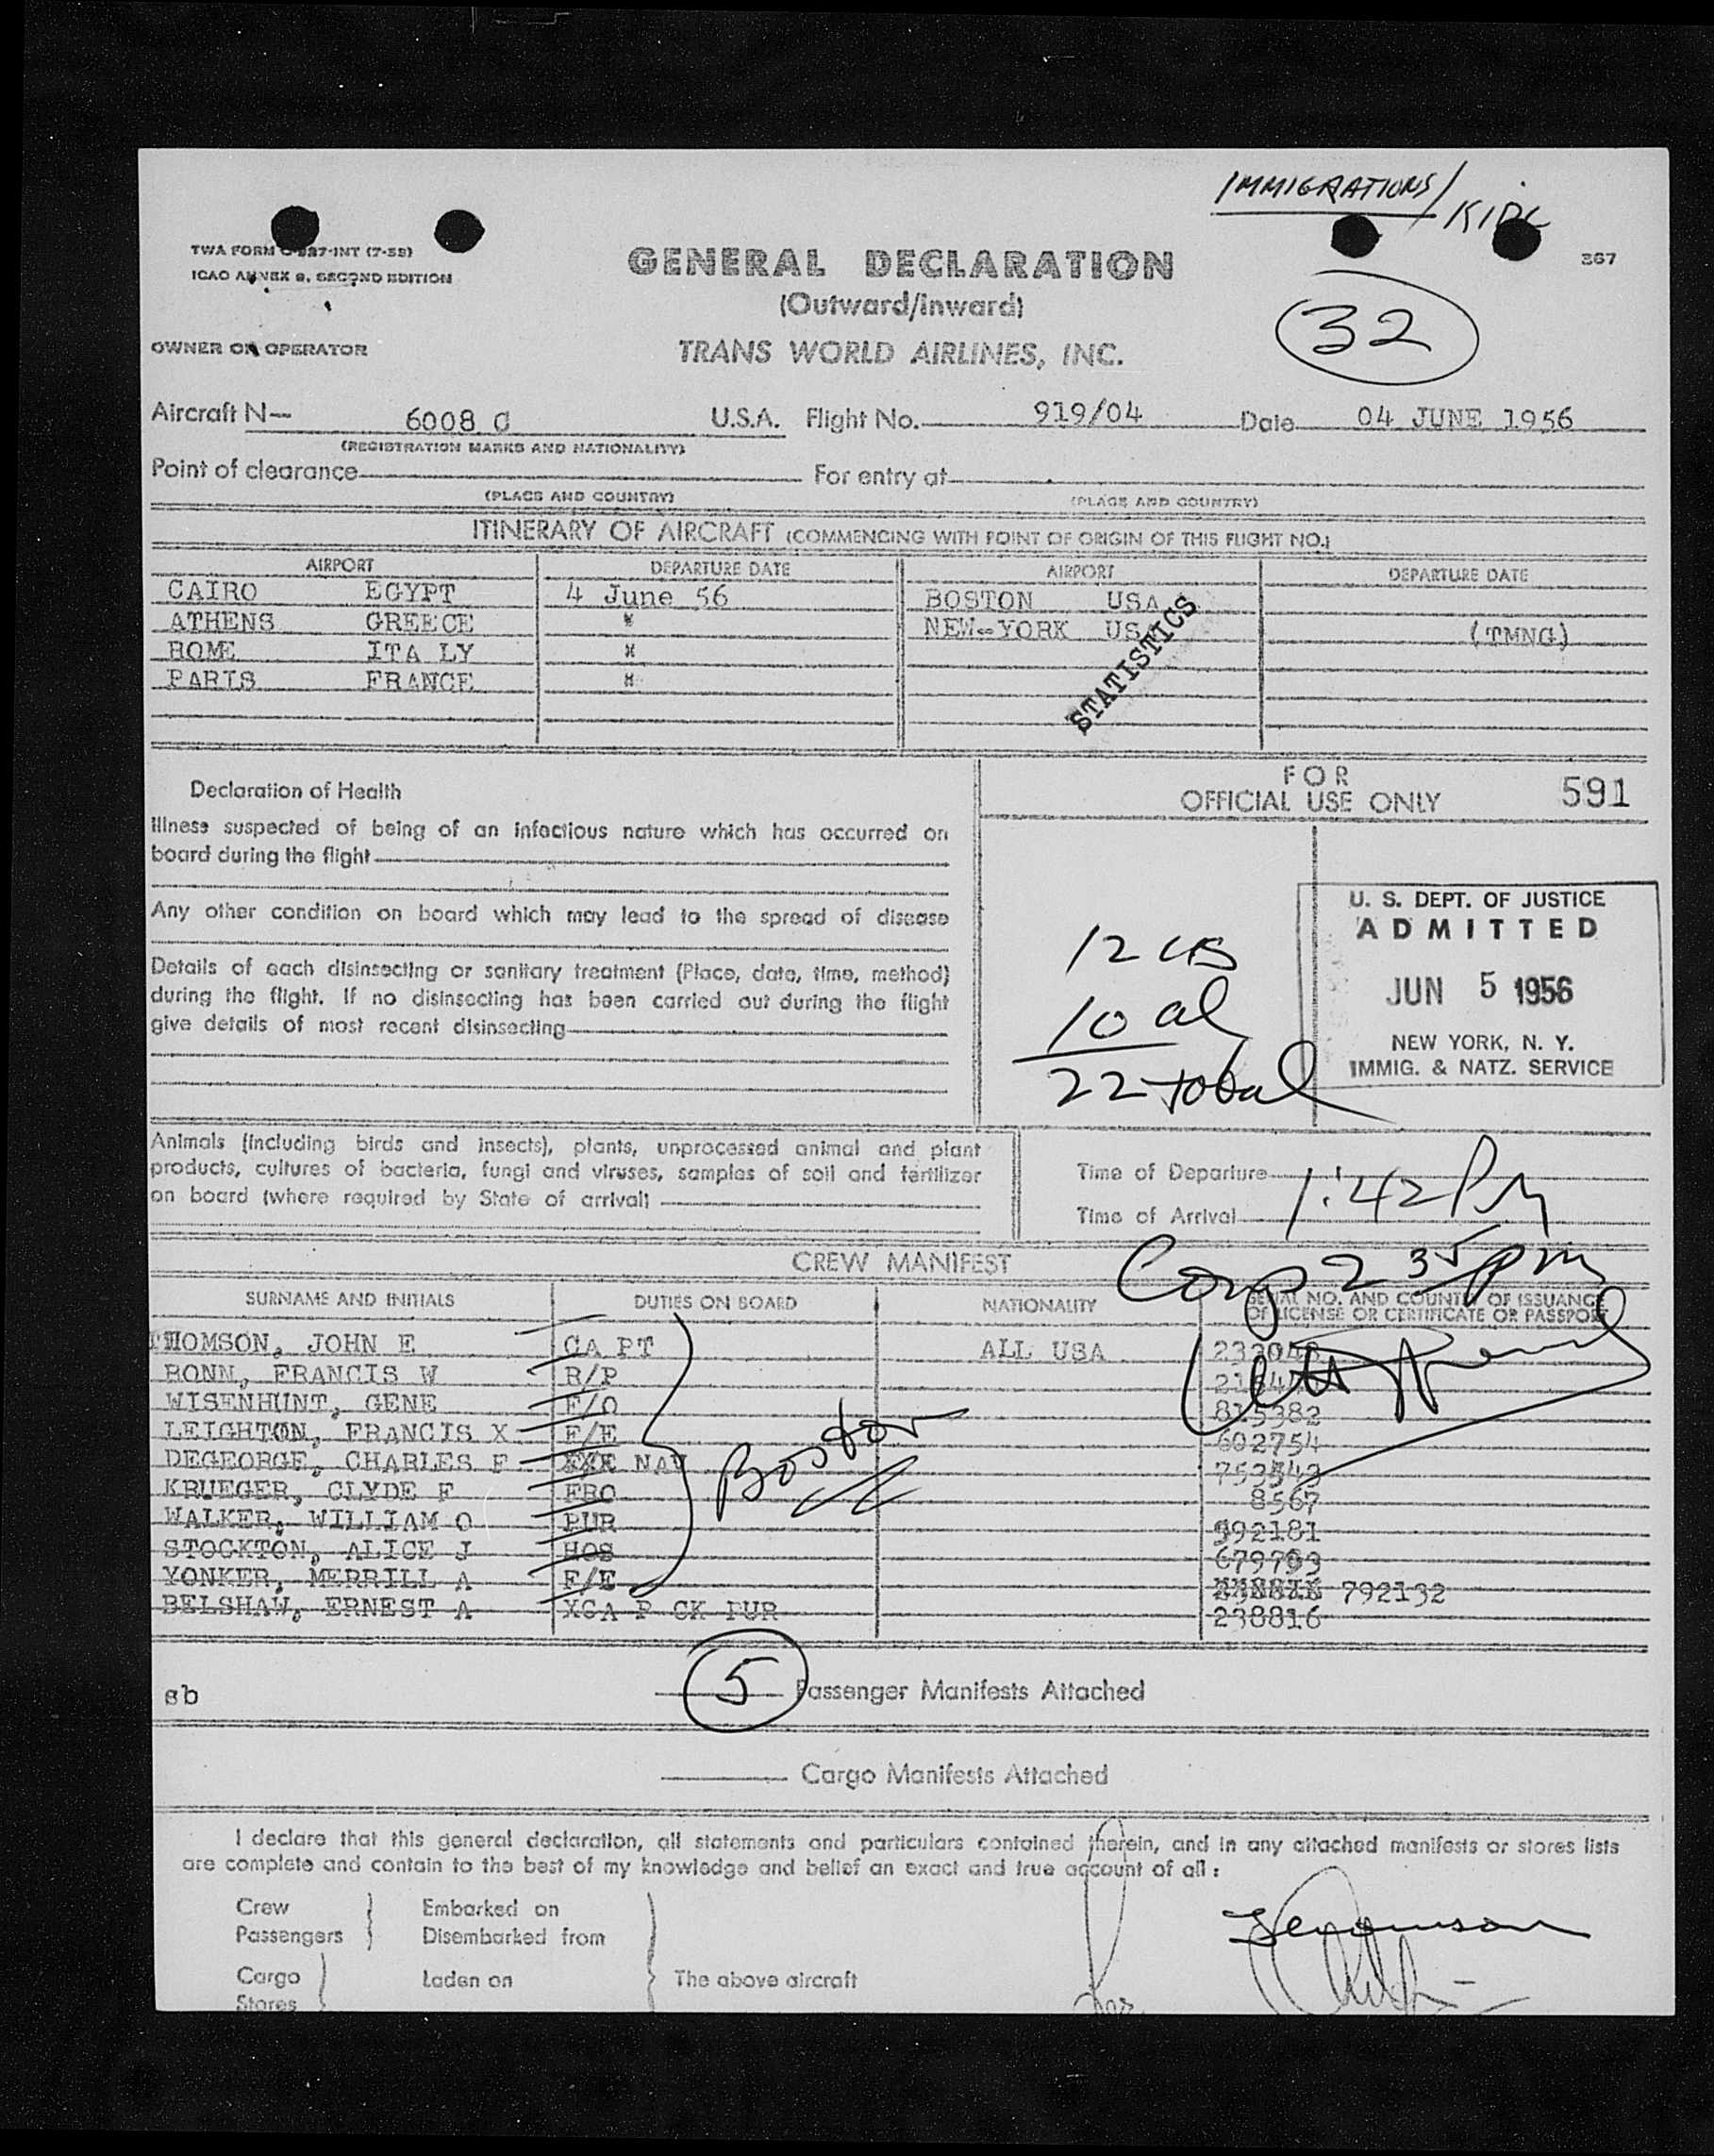 IMMIGRATIONS/
TWA FORM -INT (7-59)
ICAO ANNEX 9, SECOND EDITION
GENERAL DECLARATION
(Outward/Inward)
367
32
OWNER OR OPERATOR
TRANS WORLD AIRLINES, INC.
Aircraft N— 6008 C U.S.A. Flight No. 919/04 Date 04 JUNE 1956
(REGISTRATION MARKS AND NATIONALITY)
Point of clearance For entry at
(PLACE AND COUNTRY) (PLACE AND COUNTRY)
ITINERARY OF AIRCRAFT (COMMENCING WITH POINT OF ORIGIN OF THIS FLIGHT NO.)
AIRPORT DEPARTURE DATE AIRPORT DEPARTURE DATE
CAIRO EGYPT 4 June 56 BOSTON USA
ATHENS GREECE " NEW-YORK USA (TMNG)
ROME ITA LY "
PARIS FRANCE "
STATISTICS
Declaration of Health
FOR
OFFICIAL USE ONLY 591
Illness suspected of being of an infectious nature which has occurred on
board during the flight
Any other condition on board which may lead to the spread of disease
Details of each disinsecting or sanitary treatment (Place, date, time, method)
during the flight. If no disinsecting has been carried out during the flight
give details of most recent disinsecting
12 US
10 al
22 total
U. S. DEPT. OF JUSTICE
ADMITTED
JUN 5 1956
NEW YORK, N. Y.
IMMIG. & NATZ. SERVICE
Animals (including birds and insects), plants, unprocessed animal and plant
products, cultures of bacteria, fungi and viruses, samples of soil and fertilizer
on board (where required by State of arrival)
Time of Departure
Time of Arrival 1:42 PM
2 35 pm
CREW MANIFEST
SURNAME AND INITIALS DUTIES ON BOARD NATIONALITY SERIAL NO. AND COUNTRY OF ISSUANCE
OF LICENSE OR CERTIFICATE OR PASSPORT
THOMSON, JOHN E CA PT ALL USA
BONN, FRANCIS W R/P
WISENHUNT, GENE F/O 815382
LEIGHTON, FRANCIS X F/E 602754
DEGEORGE, CHARLES F NAV
KRUEGER, CLYDE F FRO 8567
WALKER, WILLIAM O PUR 992181
STOCKTON, ALICE J HOS 679793
YONKER, MERRILL A F/E 792132
BELSHAW, ERNEST A XCA P CK PUR 238816
Boston
sb
5 Passenger Manifests Attached
Cargo Manifests Attached
I declare that this general declaration, all statements and particulars contained therein, and in any attached manifests or stores lists
are complete and contain to the best of my knowledge and belief an exact and true account of all :
Crew Embarked on
Passengers Disembarked from
Cargo Laden on The above aircraft
Stores